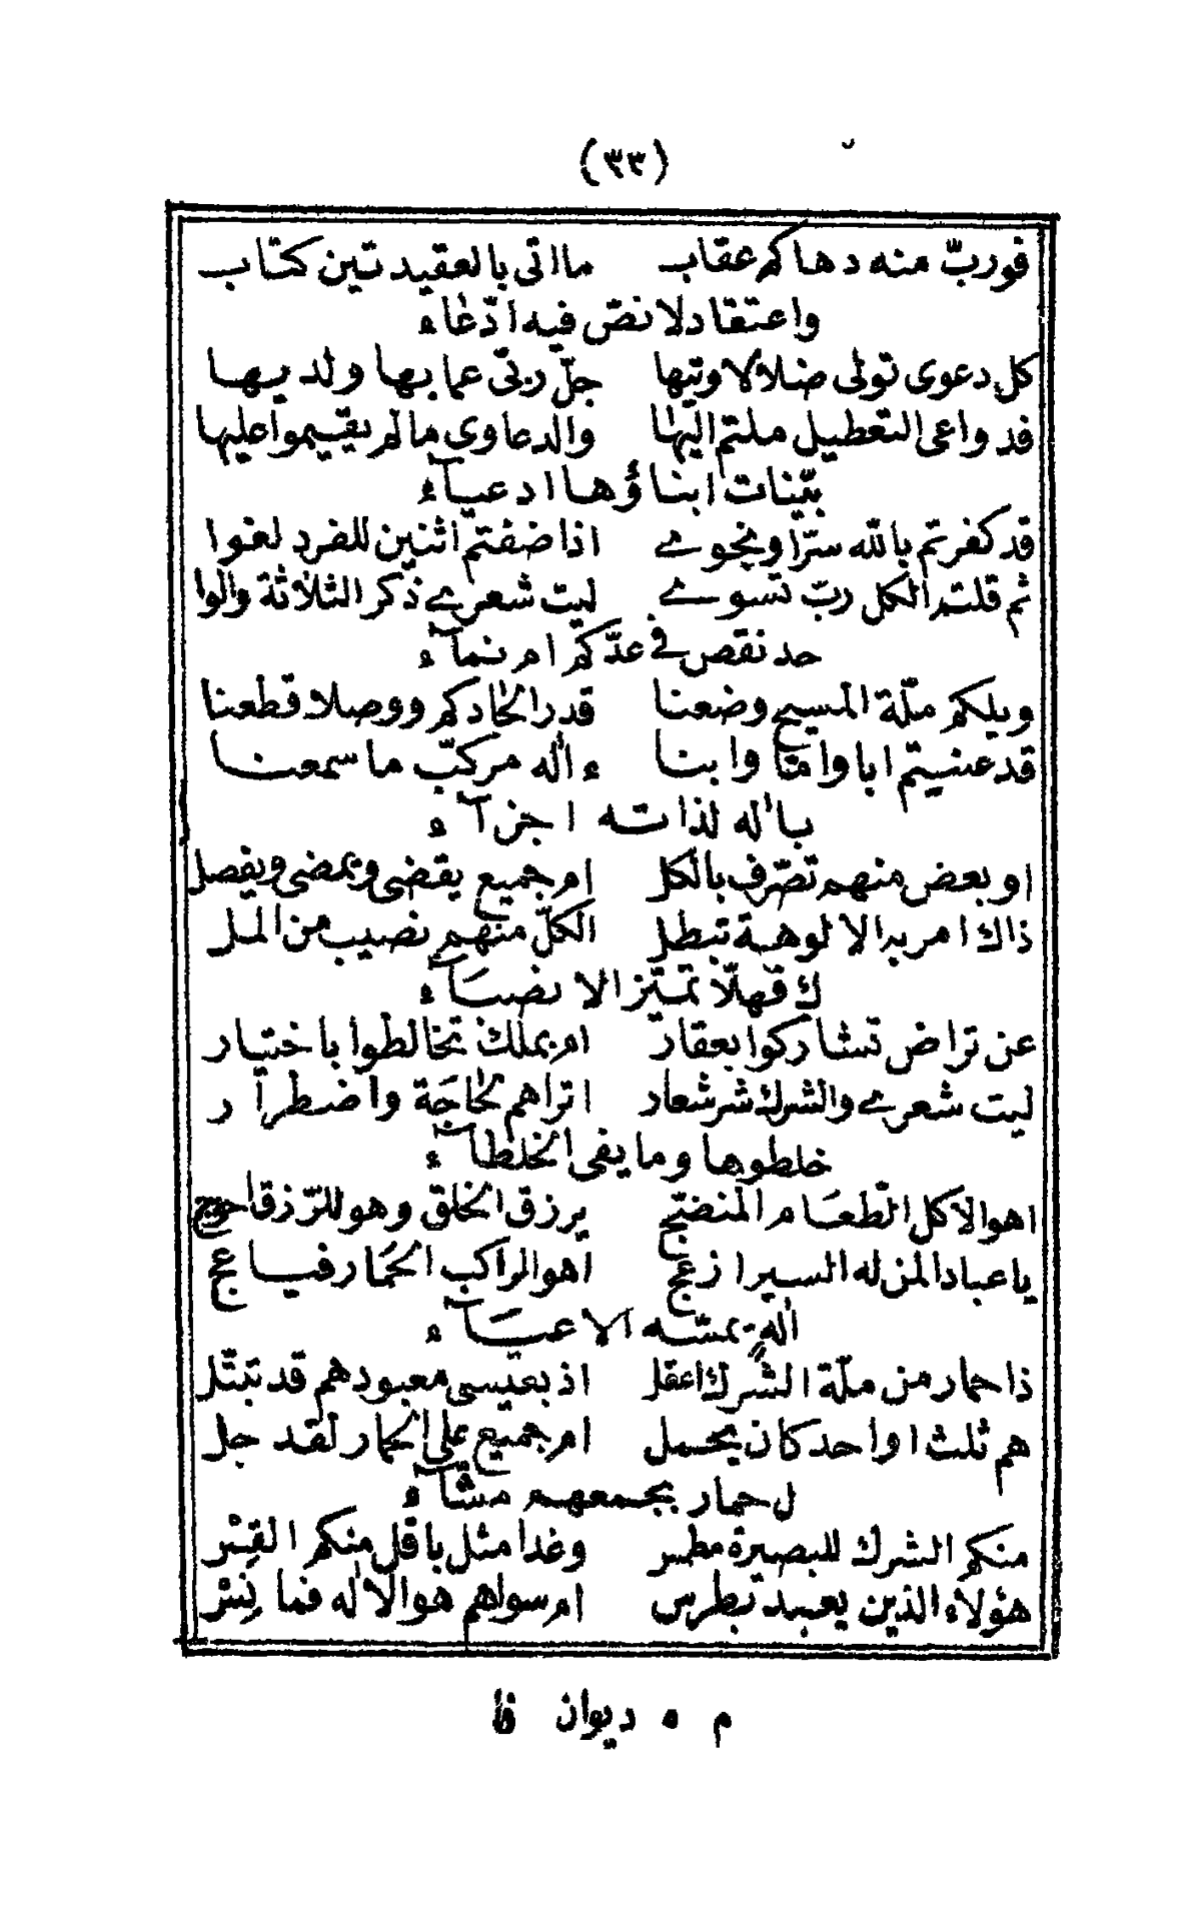 (٣٣)
فوربّ منه دهاكم عقاب ماأتى بالعقيدتين كتاب
واعتقاد لا نصّ فيه ادّعاء
كل دعوى تولى ضلالا وتيها جلّ ربّى عما بها ولديها
قد دواعى التعطيل ملتم اليها والدعاوى مالم يقيموا عليها
بيّنات ابناؤها ادعيآء
قد كفرتم بالله سرّا ونجوى اذا ضفتم اثنين للفرد لغوا
ثم قلتم الكل ربّ تسوى ليت شعرى ذكر الثلاثة والوا
حد نقص فى عدّكم ام نمآء
ويلكم ملّة المسيح وضعنا قدر الحادكم ووصلا قطعنا
قد عنيتم ابا واما وابنا ءاله مركّب ما سمعنا
باله لذاته اجزآء
او بعض منهم تصرّف بالكل ام جميع يقضى ويمضى ويفصل
ذاك امر به الالوهة تبطل الكلّ منهم نصيب من المل
ك فهلّا تميّز الانصبآء
عن تراض تشاركوا بعقار ام بملك تخالطوا باختيار
ليت شعرى والشرك شر شعار اتراهم لحاجة واضطرا ر
خلطوها وما بغى الخلطآء
اهو الاكل الطعام المنضج يرزق الخلق وهو للرّزق احوج
يا عباد المن له السير ازعج اهو الراكب الحمار فياعج
اله يمسّه الاعيآء
ذا حمار من ملّة الشرك اعقل اذ بعيسى معبودهم قد تبتّل
هم ثلث اواحد كان يحمل ام جميع على الحمار لقد جل
ل حمار بجمعهم مشّآء
منكم الشرك للبصيرة مطمس وغدا مثل باقل منكم القس
هؤلاء الذين يعبد بطرس ام سواهم هو الاله فما نس
م ٥ ديوان فا